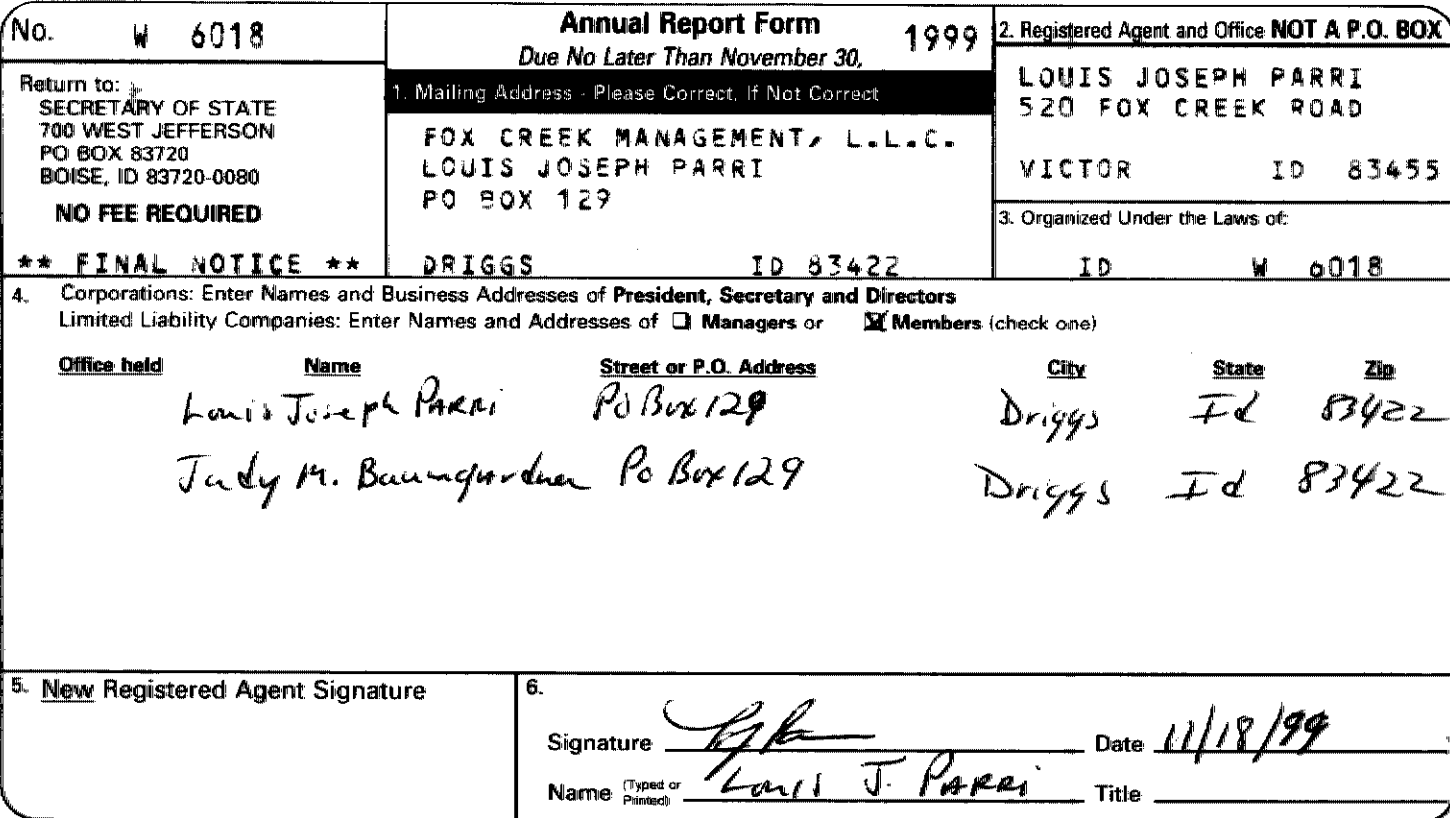 No. W 6018
Return to:
SECRETARY OF STATE
700 WEST JEFFERSON
PO BOX 83720
BOISE, ID 83720-0080
NO FEE REQUIRED
** FINAL NOTICE **
Annual Report Form 1999
Due No Later Than November 30,
1. Mailing Address - Please Correct, If Not Correct
FOX CREEK MANAGEMENT, L.L.C.
LOUIS JOSEPH PARRI
PO BOX 129
DRIGGS ID 83422
2. Registered Agent and Office NOT A P.O. BOX
LOUIS JOSEPH PARRI
520 FOX CREEK ROAD
VICTOR ID 83455
3. Organized Under the Laws of:
ID W 6018
4. Corporations: Enter Names and Business Addresses of President, Secretary and Directors
Limited Liability Companies: Enter Names and Addresses of ☐ Managers or ☒ Members (check one)
Office held Name Street or P.O. Address City State Zip
Louis Joseph PARRi Po Box 129 Driggs Id 83422
Judy M. Baumgardner Po Box 129 Driggs Id 83422
5. New Registered Agent Signature
6.
Signature Date 11/18/99
Name (Typed or Printed) Louis J. PARRi Title